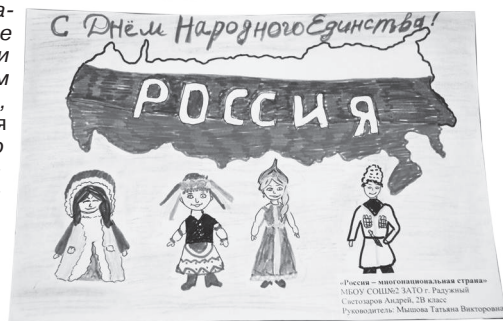 а-
е
и
м
,
я
о
С Днём Народного Единства!
РОССИЯ
«Россия – многонациональная страна»
МБОУ СОШ№2 ЗАТО г. Радужный
Светозаров Андрей, 2В класс
Руководитель: Мышова Татьяна Викторовна